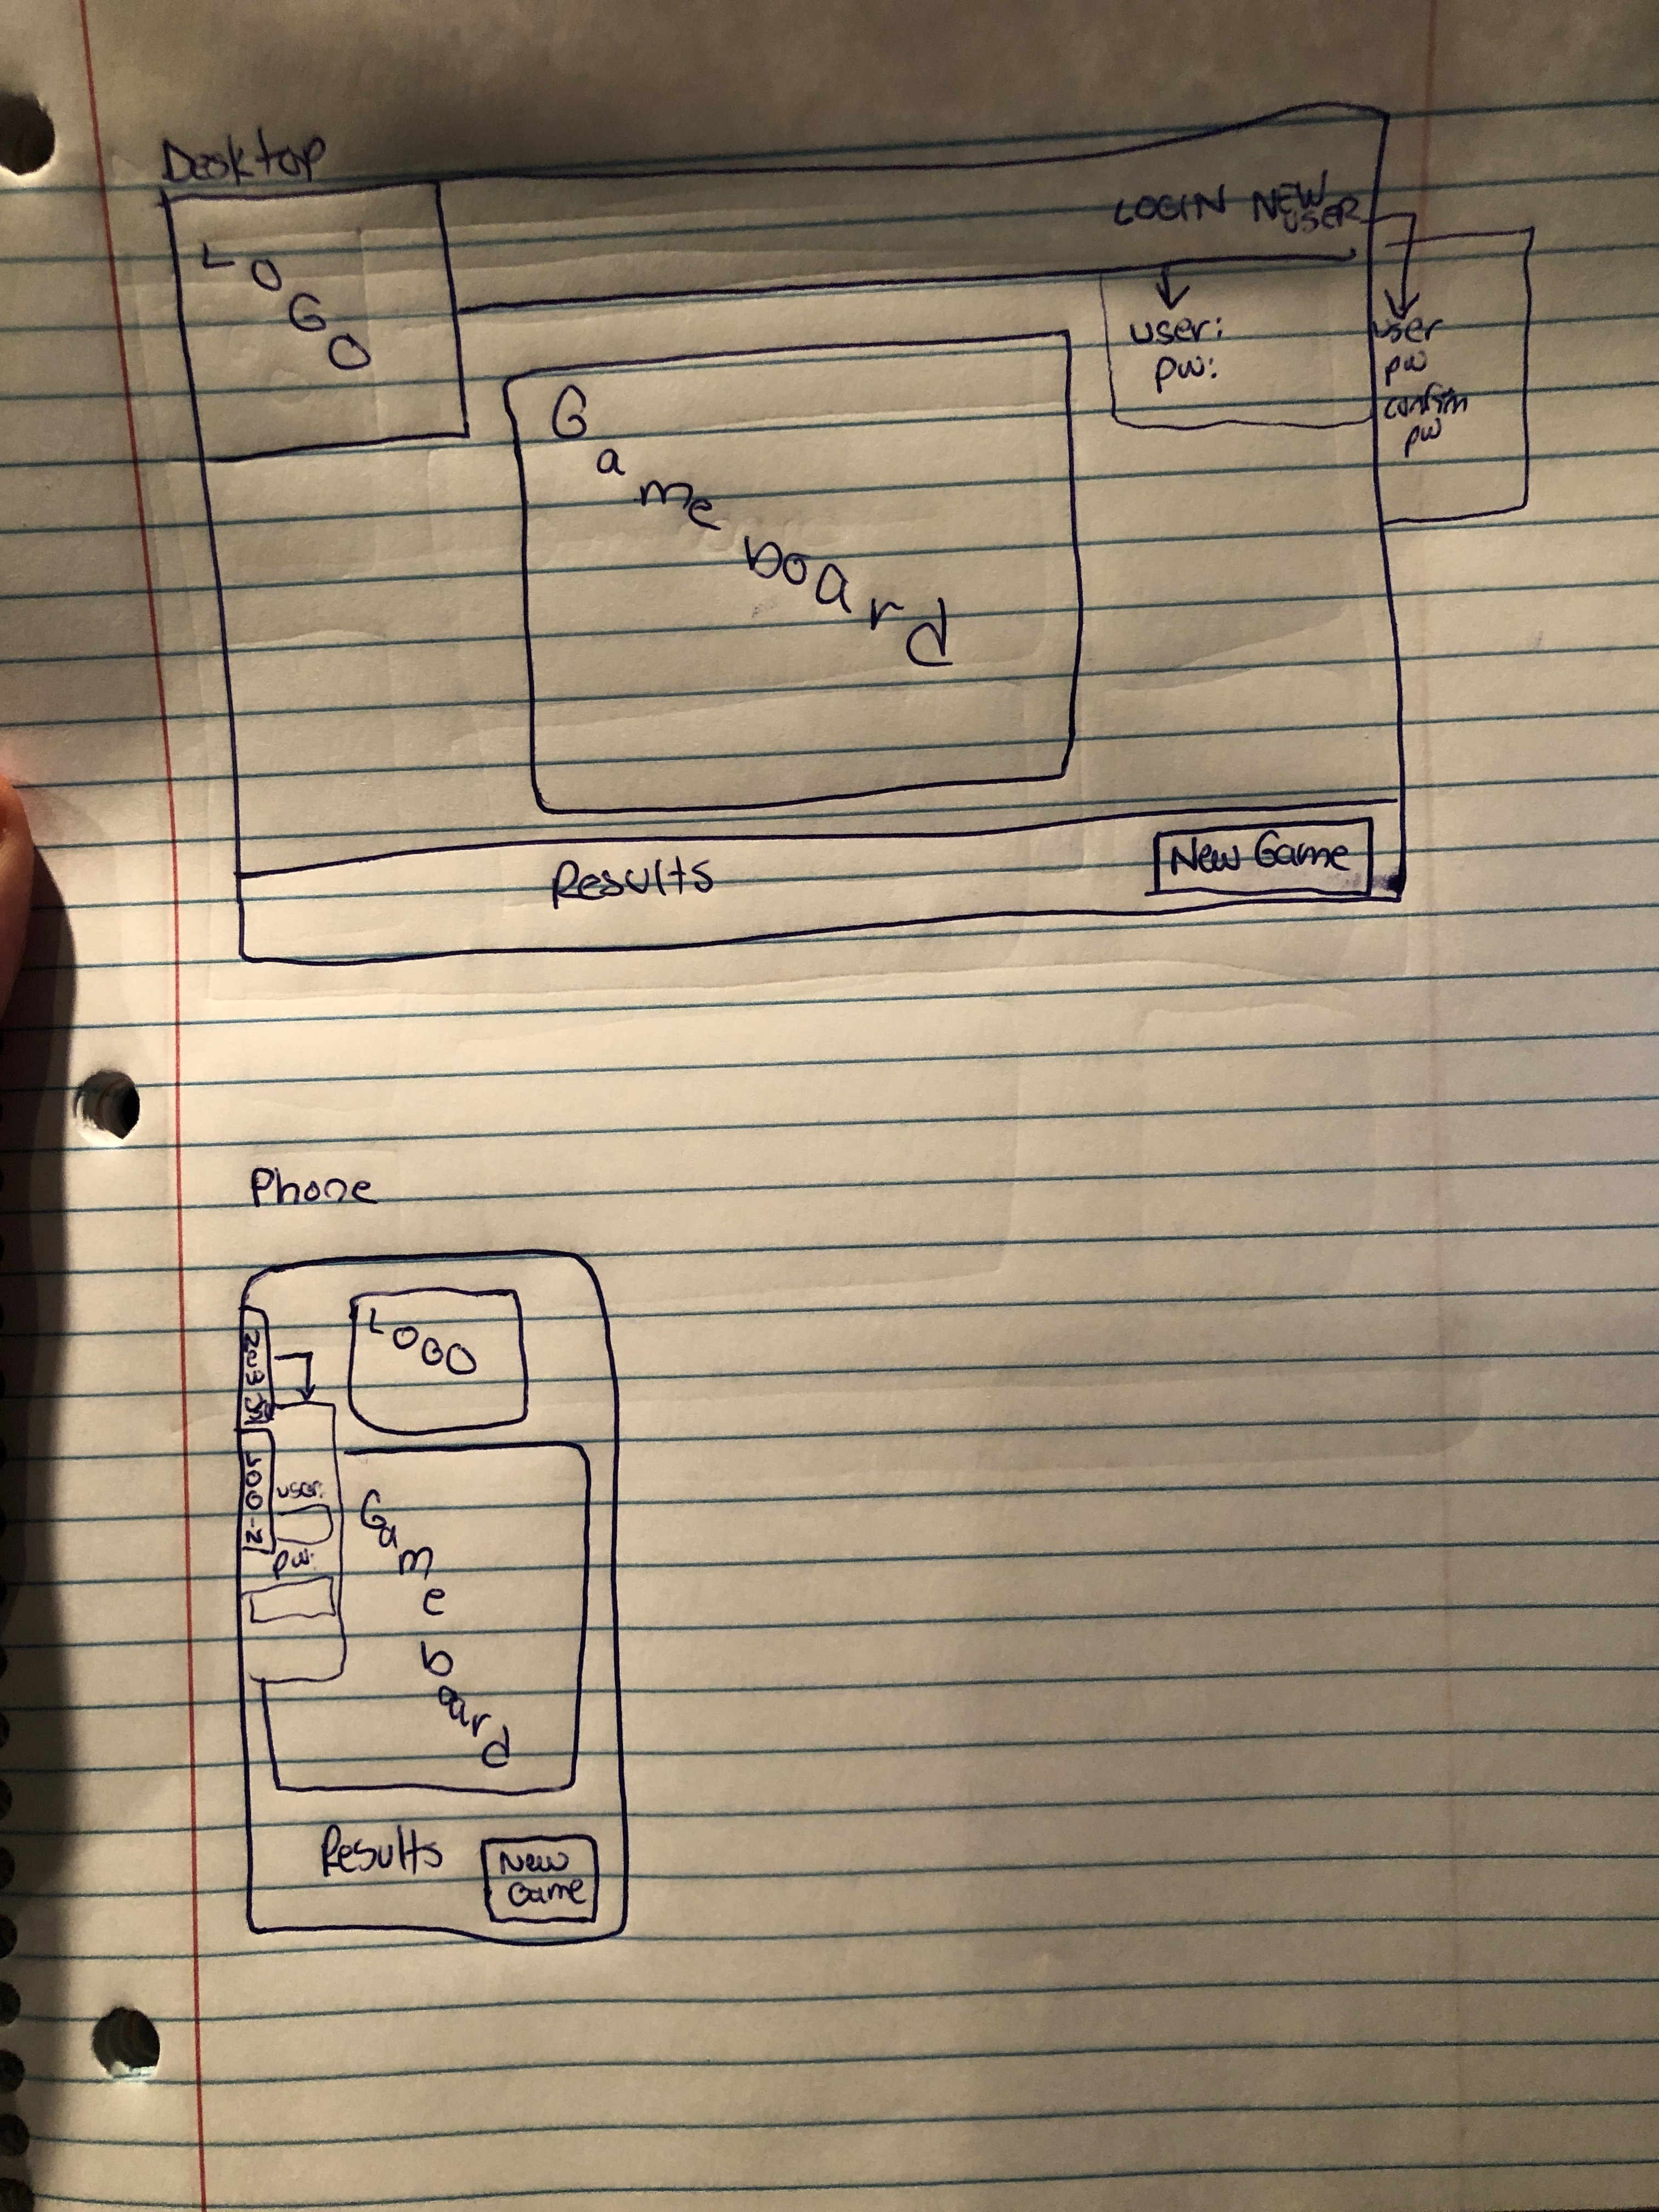 Desktop
LOGO
LOGIN NEW
USER
user:
pw:
user
pw
confirm
pw
Game board
Results
New Game
Phone
LOGO
user:
pw:
Game board
Results
New
Game